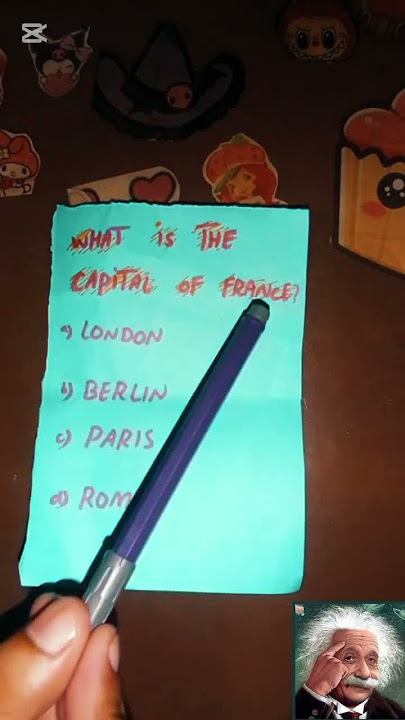 WHAT IS THE
CAPITAL OF FRANCE?
a) LONDON
b) BERLIN
c) PARIS
d) ROM